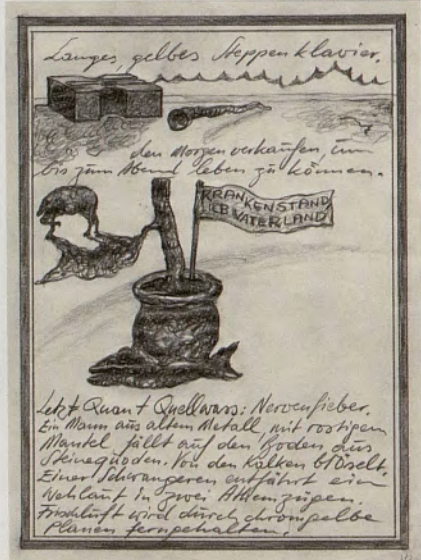 Langes, gelbes Steppenklavier.
den Morgen verkaufen, um
bis zum Abend leben zu können.
KRANKENSTAND
LIEB VATERLAND
Letzt Quant Quellwass: Nervenfieber.
Ein Mann aus altem Metall, mit rostigem
Mantel fällt auf den Boden aus
Steinequoden. Von den Kalken blöselt.
Einer Schwangeren entfährt ein
Wehlaut in zwei Atemzügen.
Frischluft wird durch chromgelbe
Planen ferngehalten.